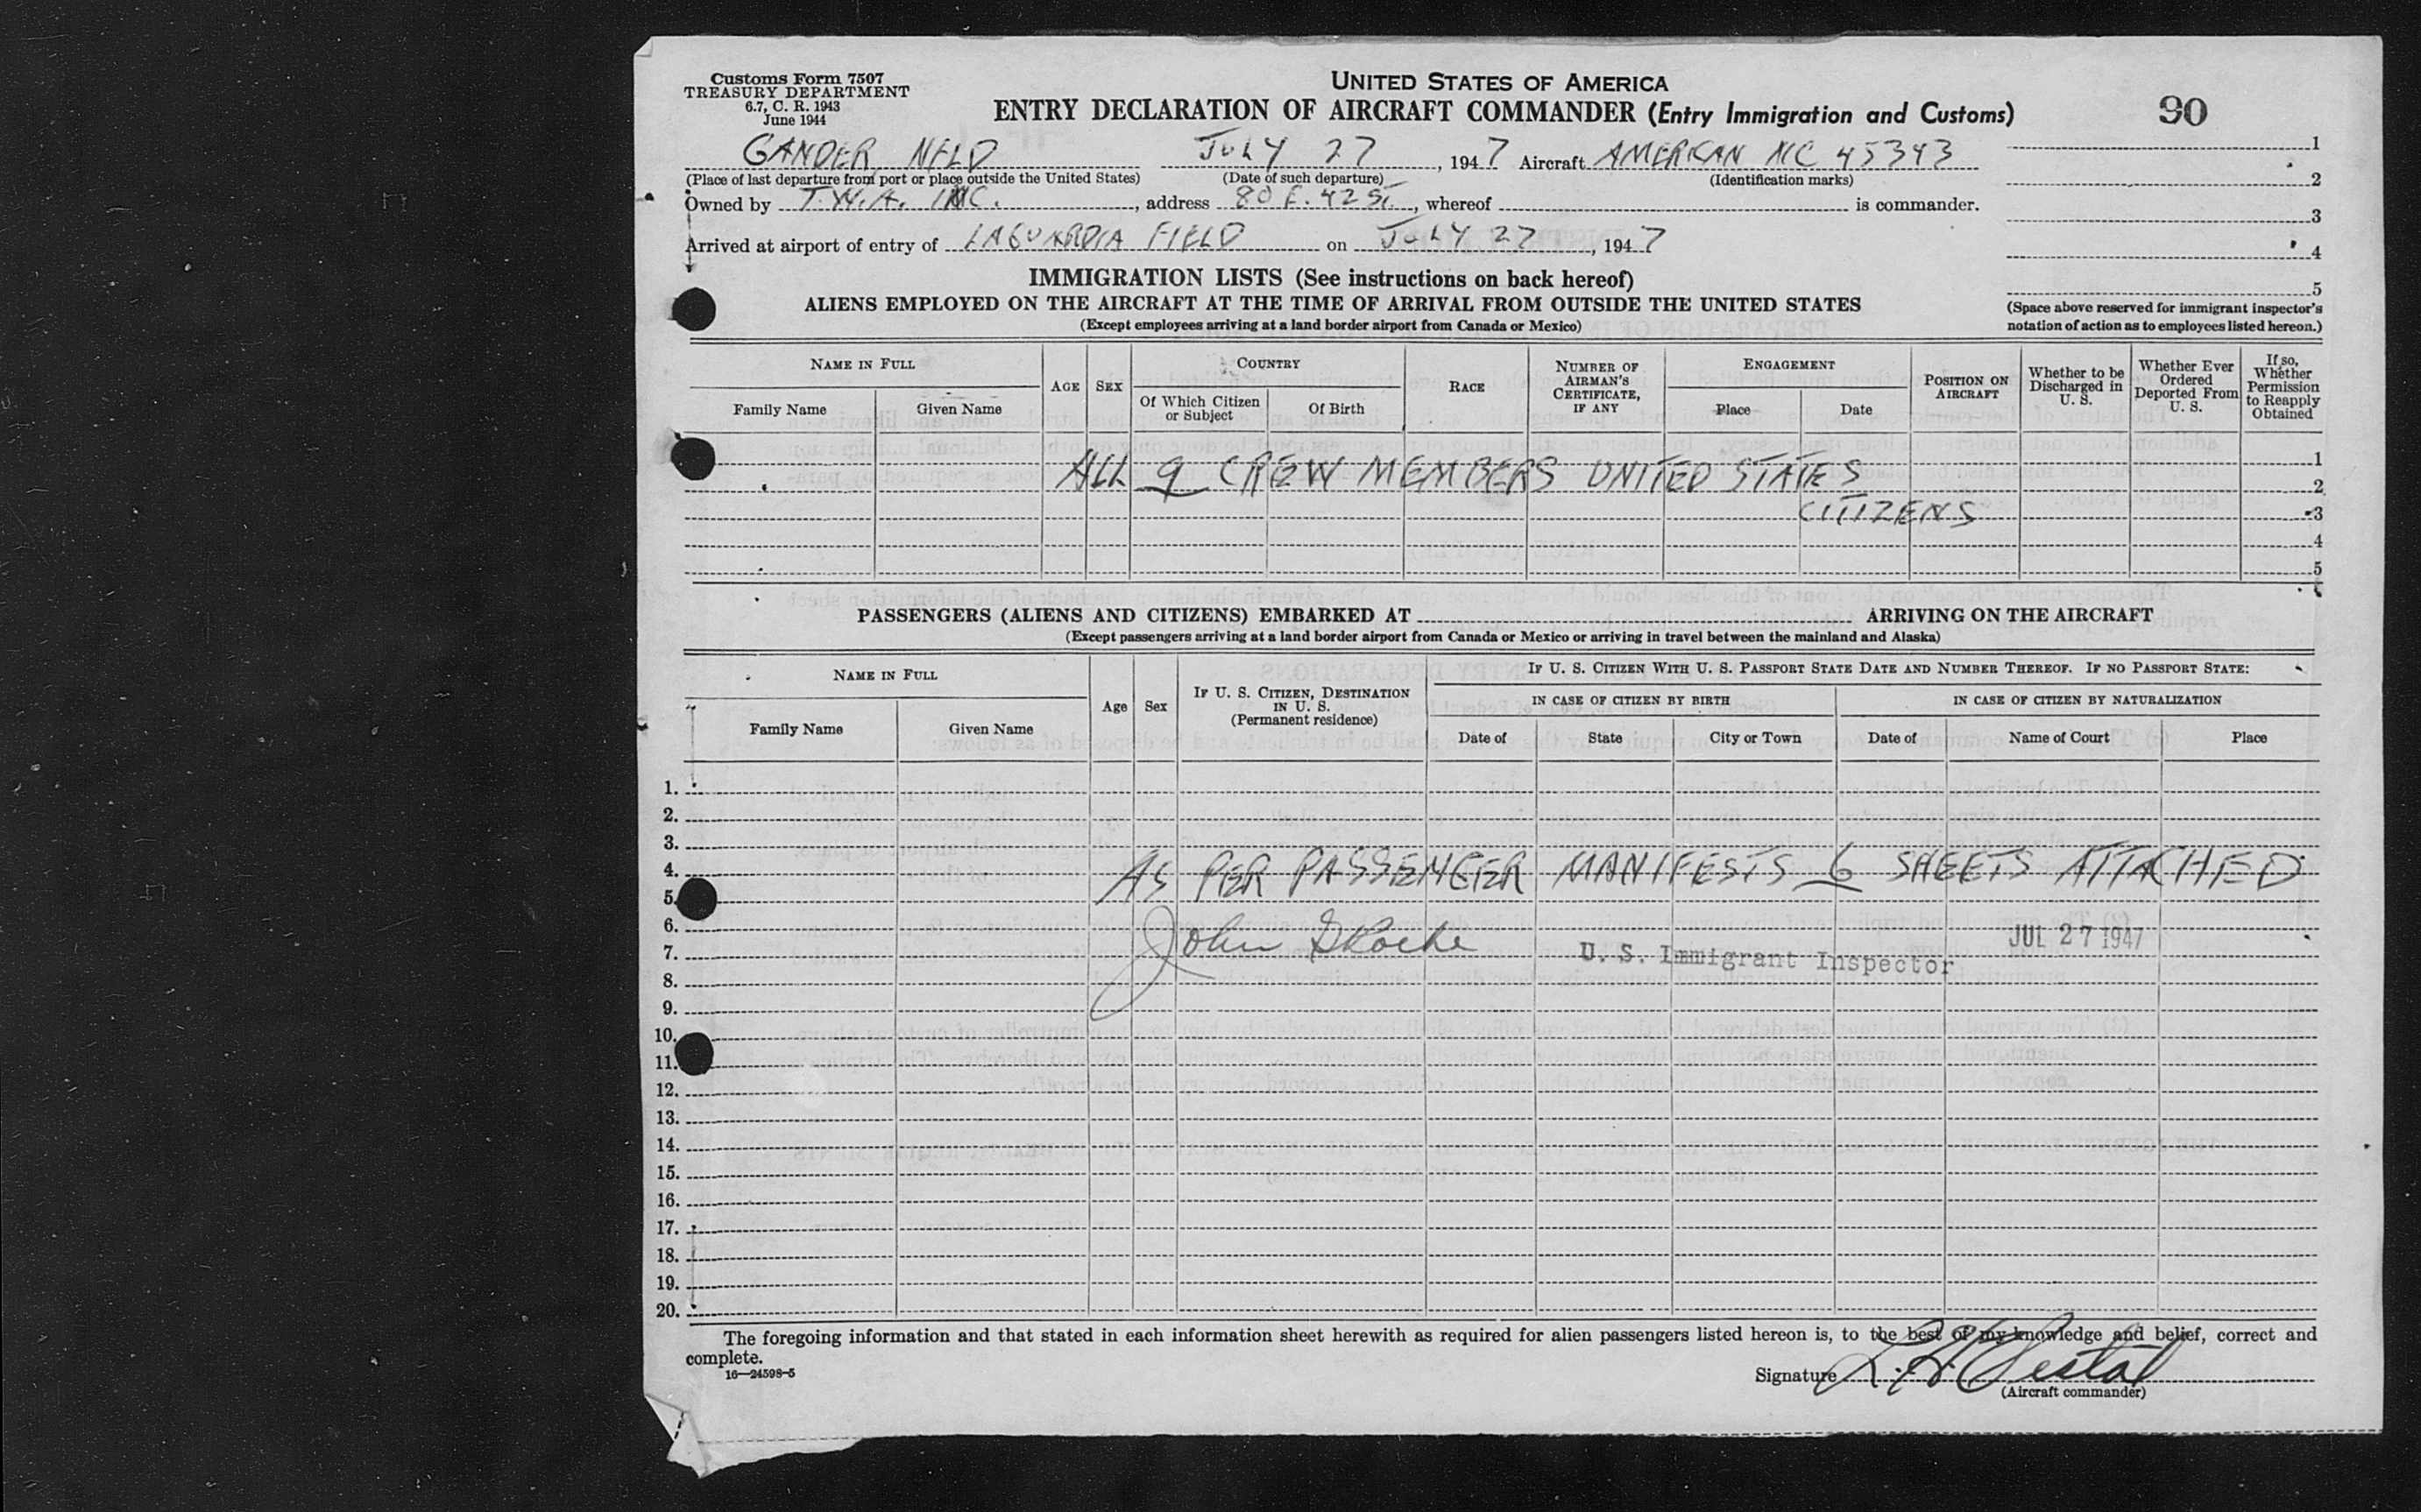 Customs Form 7507
TREASURY DEPARTMENT
6.7, C. R. 1943
June 1944
UNITED STATES OF AMERICA
ENTRY DECLARATION OF AIRCRAFT COMMANDER (Entry Immigration and Customs)
90
GANDER, NFLD JULY 27, 1947 Aircraft AMERICAN NC 45343
(Place of last departure from port or place outside the United States) (Date of such departure) (Identification marks)
Owned by T.W.A. INC., address 80 E. 42 ST., whereof is commander.
Arrived at airport of entry of LAGUARDIA FIELD on JULY 27, 1947
1
2
3
4
5
(Space above reserved for immigrant inspector's
notation of action as to employees listed hereon.)
IMMIGRATION LISTS (See instructions on back hereof)
ALIENS EMPLOYED ON THE AIRCRAFT AT THE TIME OF ARRIVAL FROM OUTSIDE THE UNITED STATES
(Except employees arriving at a land border airport from Canada or Mexico)
NAME IN FULL
Family Name
Given Name
AGE
SEX
COUNTRY
Of Which Citizen
or Subject
Of Birth
RACE
NUMBER OF
AIRMAN'S
CERTIFICATE,
IF ANY
ENGAGEMENT
Place
Date
POSITION ON
AIRCRAFT
Whether to be
Discharged in
U. S.
Whether Ever
Ordered
Deported From
U. S.
If so,
Whether
Permission
to Reapply
Obtained
1
ALL 9 CREW MEMBERS UNITED STATES
2
CITIZENS
3
4
5
PASSENGERS (ALIENS AND CITIZENS) EMBARKED AT ARRIVING ON THE AIRCRAFT
(Except passengers arriving at a land border airport from Canada or Mexico or arriving in travel between the mainland and Alaska)
NAME IN FULL
Family Name
Given Name
Age
Sex
IF U. S. CITIZEN, DESTINATION
IN U. S.
(Permanent residence)
IF U. S. CITIZEN WITH U. S. PASSPORT STATE DATE AND NUMBER THEREOF. IF NO PASSPORT STATE:
IN CASE OF CITIZEN BY BIRTH
Date of
State
City or Town
IN CASE OF CITIZEN BY NATURALIZATION
Date of
Name of Court
Place
1.
2.
3.
4. AS PER PASSENGER MANIFESTS 6 SHEETS ATTACHED
5.
6.
7. John Roche U. S. Immigrant Inspector JUL 27 1947
8.
9.
10.
11.
12.
13.
14.
15.
16.
17.
18.
19.
20.
The foregoing information and that stated in each information sheet herewith as required for alien passengers listed hereon is, to the best of my knowledge and belief, correct and
complete.
16—24598-5
Signature
(Aircraft commander)